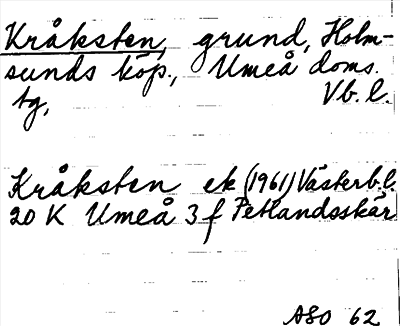 Kråksten, grund, Holm-
sunds köp., Umeå doms.
tg, Vb. l.
Kråksten ek (1961) Västerb.l.
20 K Umeå 3 f Petlandsskär
ASO 62